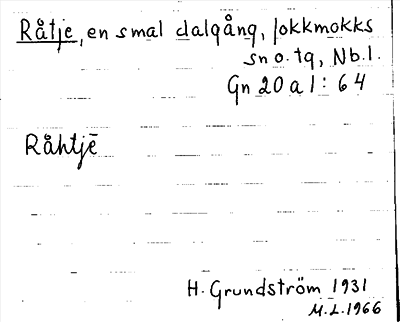 Råtje, en smal dalgång, Jokkmokks
sn o. tg, Nb.l.
Gn 20 a 1: 64
Råhtjē
H. Grundström 1931
M.L. 1966